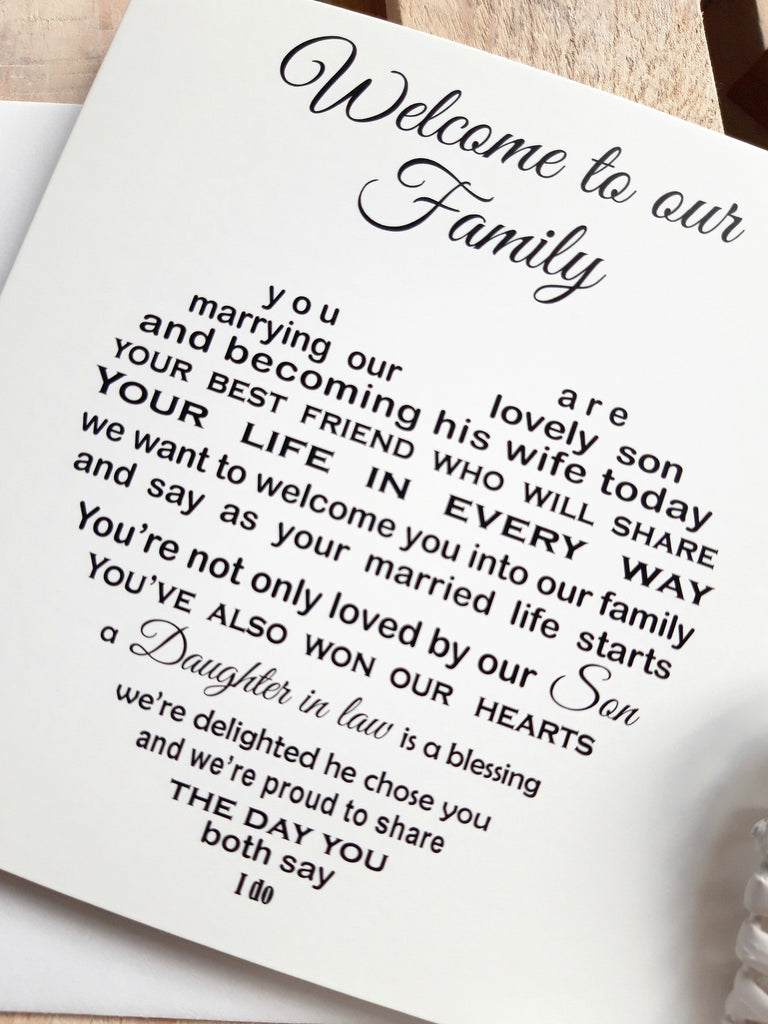 Welcome to our
Family
you are
marrying our lovely son
and becoming his wife today
YOUR BEST FRIEND WHO WILL SHARE
YOUR LIFE IN EVERY WAY
we want to welcome you into our family
and say as your married life starts
You're not only loved by our Son
YOU'VE ALSO WON OUR HEARTS
a Daughter in law is a blessing
we're delighted he chose you
and we're proud to share
THE DAY YOU
both say
I do